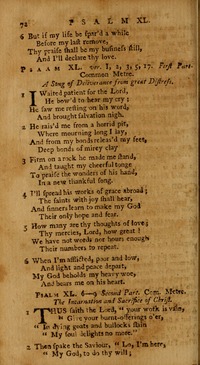 72 PSALM XL.
6 But if my life be spar'd a while
Before my last remove,
Thy praise shall be my business still,
And I'll declare thy love.
PSALM XL. ver. 1, 2, 3, 5, 17. First Part.
Common Metre.
A Song of Deliverance from great Distress.
1 I Waited patient for the Lord,
He bow'd to hear my cry;
He saw me resting on his word,
And brought salvation nigh.
2 He rais'd me from a horrid pit,
Where mourning long I lay,
And from my bonds releas'd my feet,
Deep bonds of mirey clay
3 Firm on a rock he made me stand,
And taught my cheerful tongue
To praise the wonders of his hand,
In a new thankful song.
4 I'll spread his works of grace abroad;
The saints with joy shall hear,
And sinners learn to make my God
Their only hope and fear.
5 How many are thy thoughts of love;
Thy mercies, Lord, how great!
We have not words nor hours enough
Their numbers to repeat.
6 When I'm afflicted, poor and low,
And light and peace depart,
My God beholds my heavy woe,
And bears me on his heart.
PSALM XL. 6—9 Second Part. Com. Metre.
The Incarnation and Sacrifice of Christ.
1 THUS saith the Lord, "your work is vain,
"Give your burnt-offerings o'er,
"In dying goats and bullocks slain
"My soul delights no more."
2 Then spake the Saviour, "Lo, I'm here,
"My God, to do thy will;